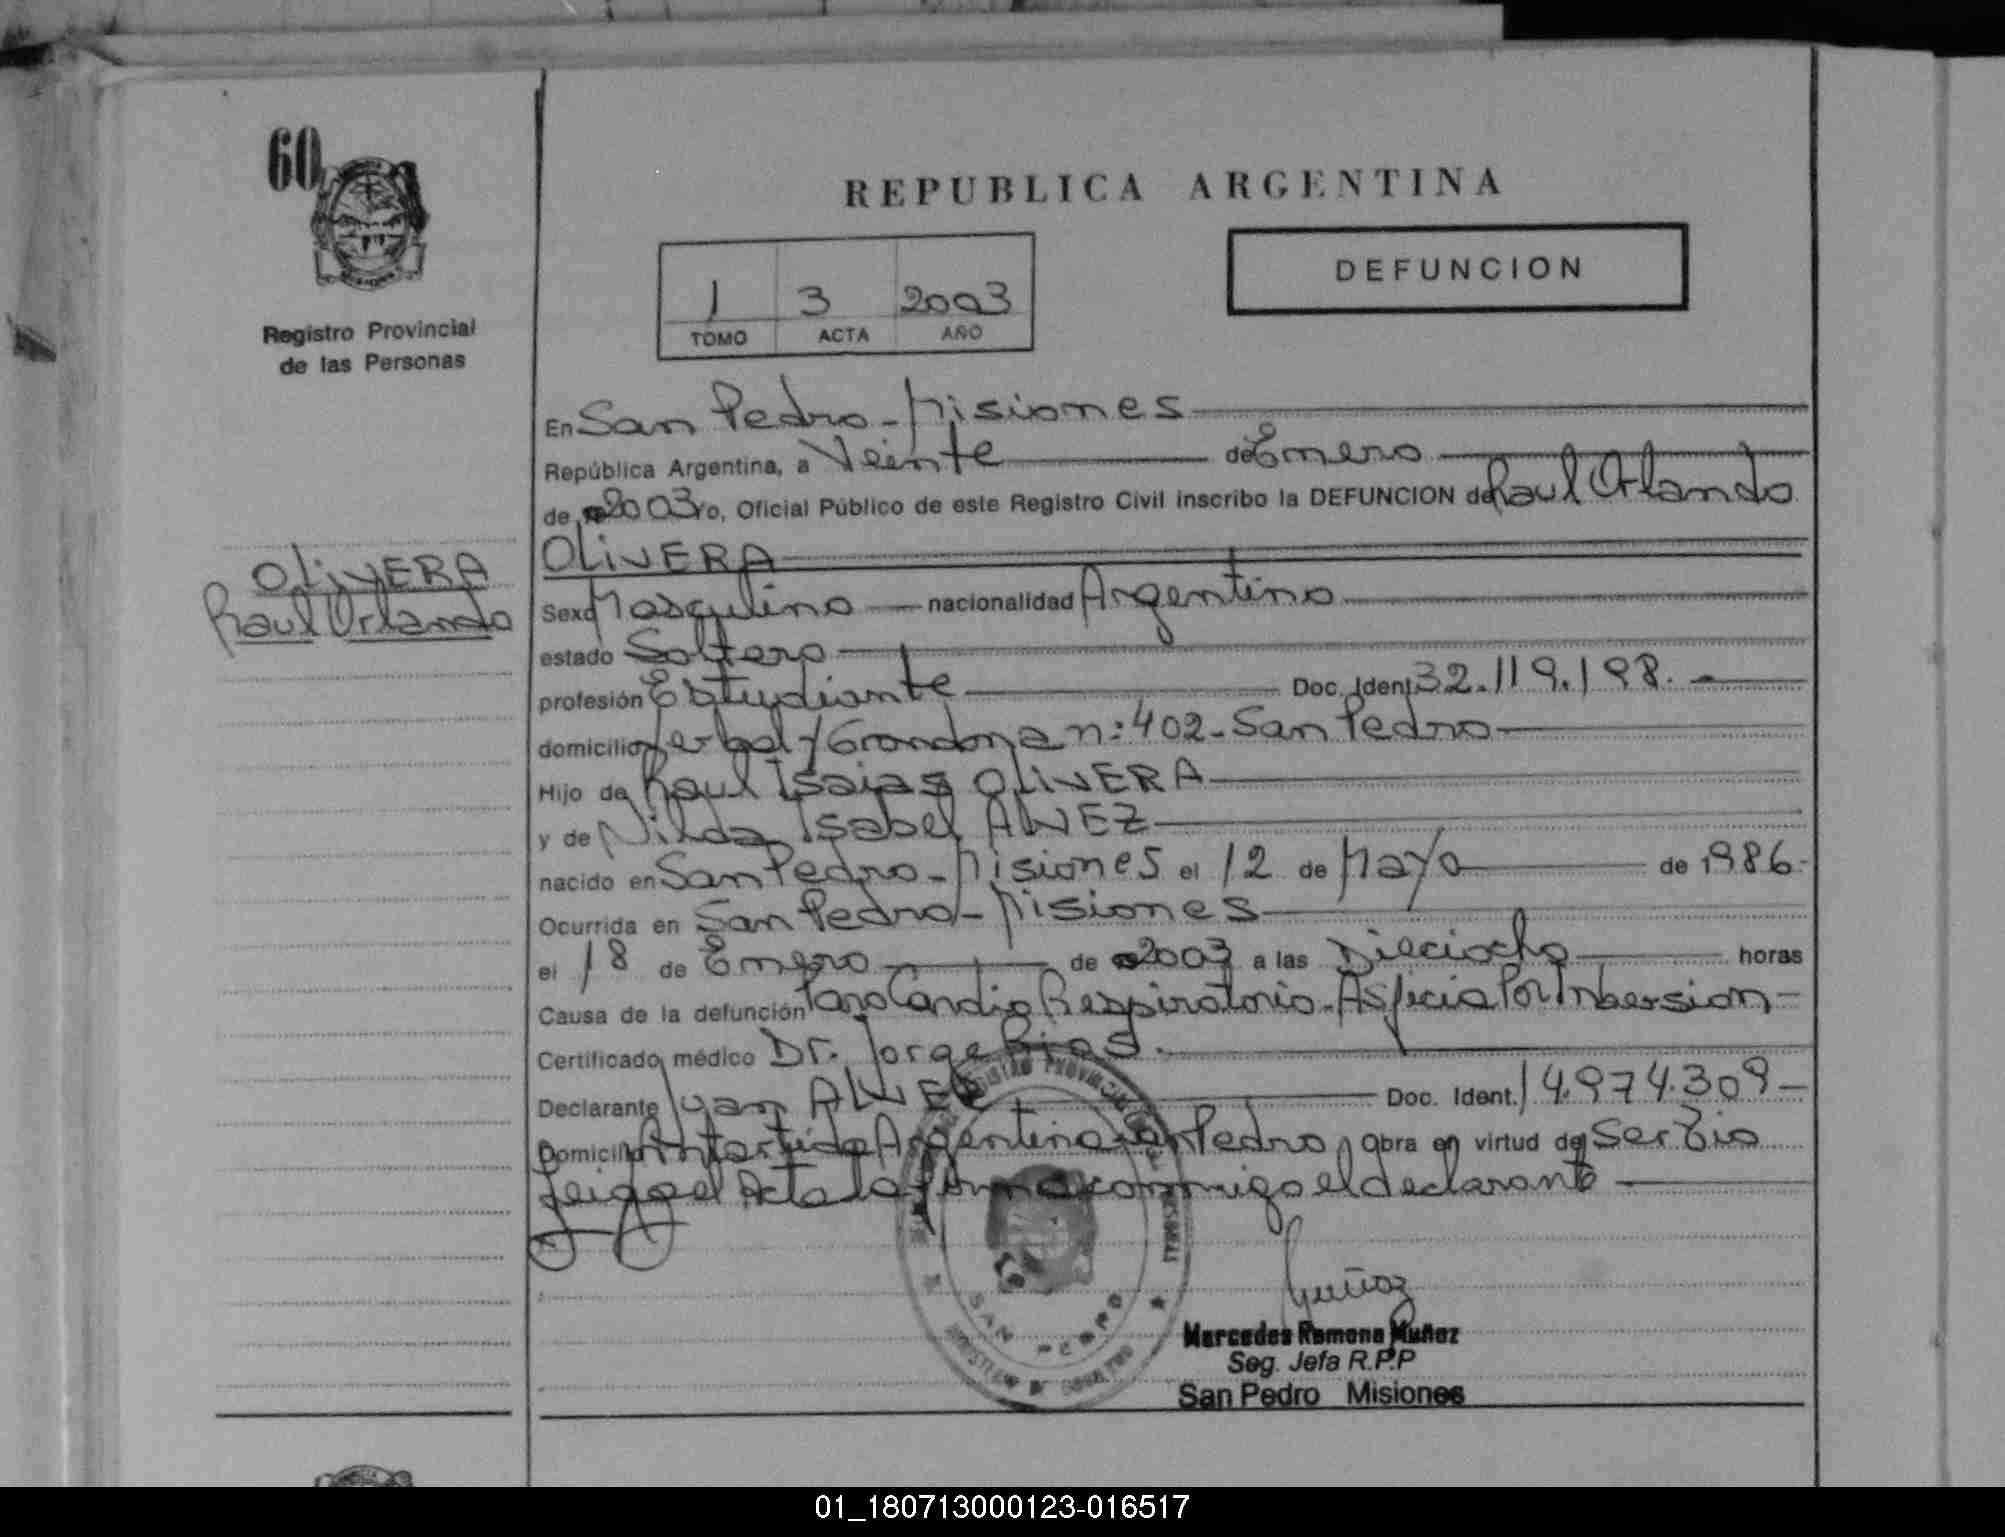 60
REPUBLICA ARGENTINA
DEFUNCION
1 3 2003
TOMO ACTA AÑO
Registro Provincial
de las Personas
En San Pedro - Misiones
República Argentina, a Veinte de Enero
de 2003 yo, Oficial Público de este Registro Civil inscribo la DEFUNCION de Raul Orlando
OLIVERA
OLIVERA
Raul Orlando
Sexo Masculino nacionalidad Argentino
estado Soltero
profesión Estudiante Doc. Ident. 32.119.198.-
domicilio Yerbal y Grondona n: 402 - San Pedro
Hijo de Raul Isaias OLIVERA
y de Nilda Isabel ALVEZ
nacido en San Pedro - Misiones el 12 de Mayo de 1986-
Ocurrida en San Pedro - Misiones
el 18 de Enero de 2003 a las Dieciocho horas
Causa de la defunción Paro Cardio Respiratorio - Asficia Por Inbersion-
Certificado médico Dr. Jorge Rios.
Declarante ALVEZ Doc. Ident. 14.974.309-
Domicilio Antartida Argentina San Pedro, obra en virtud de ser Tio
leigo el Acta la firma conmigo el declarante
REGISTRO PROVINCIAL DE LAS PERSONAS
SAN PEDRO
MINISTERIO DE GOBIERNO
Muñoz
Mercedes Ramona Muñoz
Seg. Jefa R.P.P
San Pedro Misiones
01_180713000123-016517